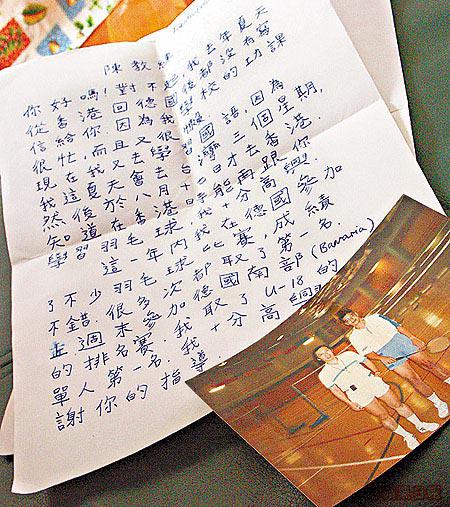 陳教練
你好嗎!對不起,我去年夏天
從香港回德國後都沒有寫
信給你因為我學校的功課
很忙,而且又學國語,因為
我這夏天會去台灣三個星期,
然後於八月十日才去香港,
知道在香港能再跟你
學習羽毛球,我十分高興!
這一年內我在德國參加
了不少羽毛球比賽,成績
不錯,很多次都取了第一名.
上週末參加德國南部(Bavaria)
的排名賽,我取了 U-18 的
單人第一名.我十分高
謝你的指導.